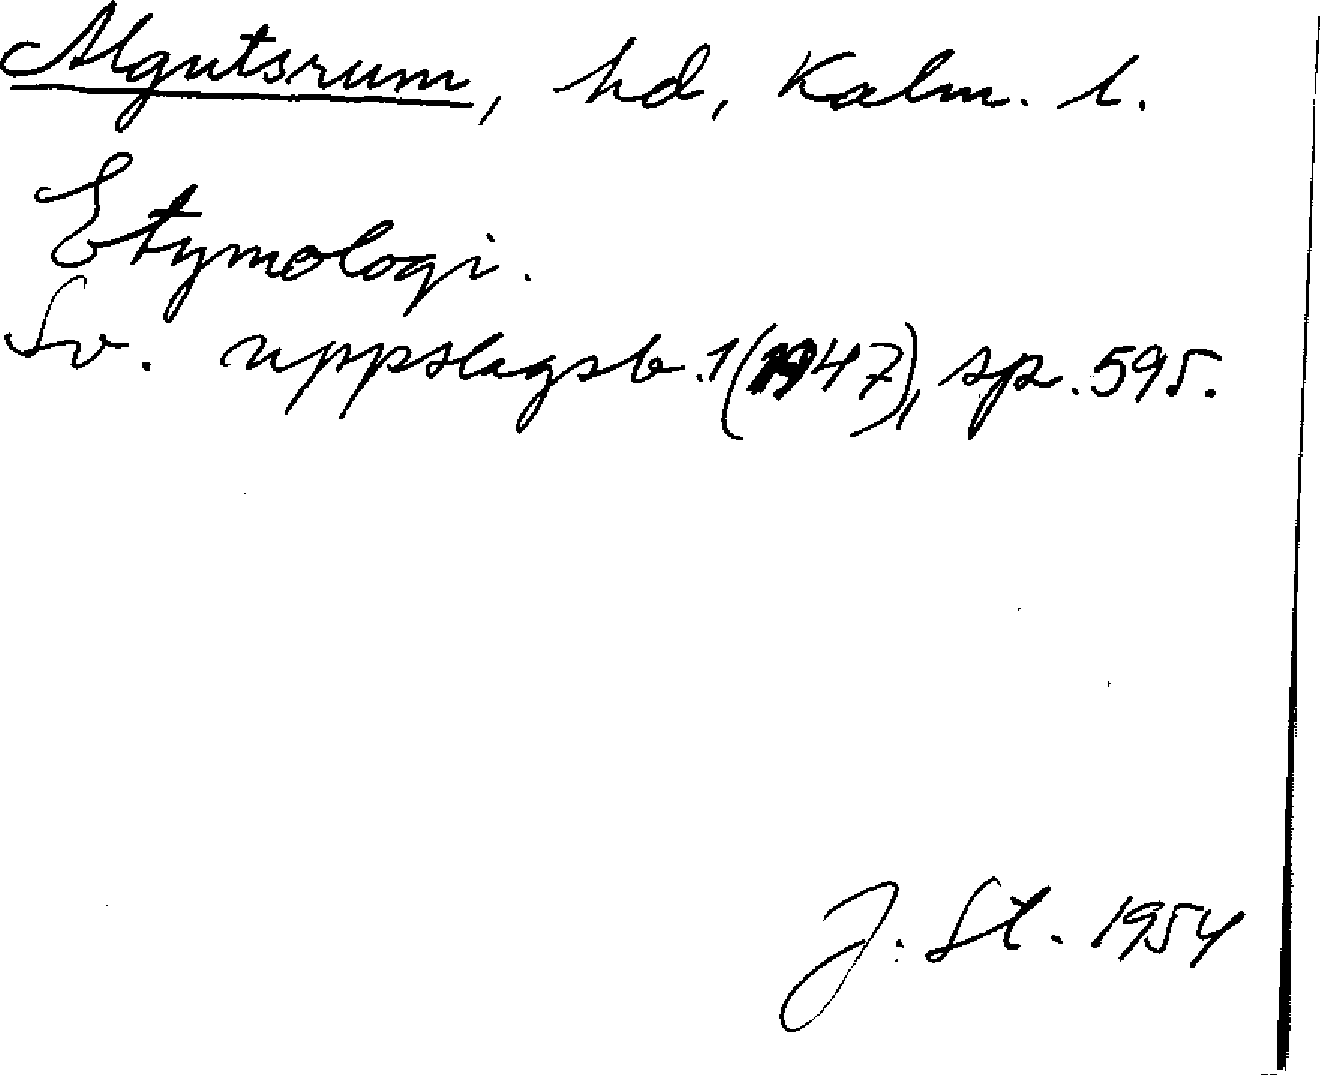 Algutsrum, hd, Kalm. l.
Etymologi.
Sv. uppslagsb. 1 (1947), sp. 595.
J. St. 1954